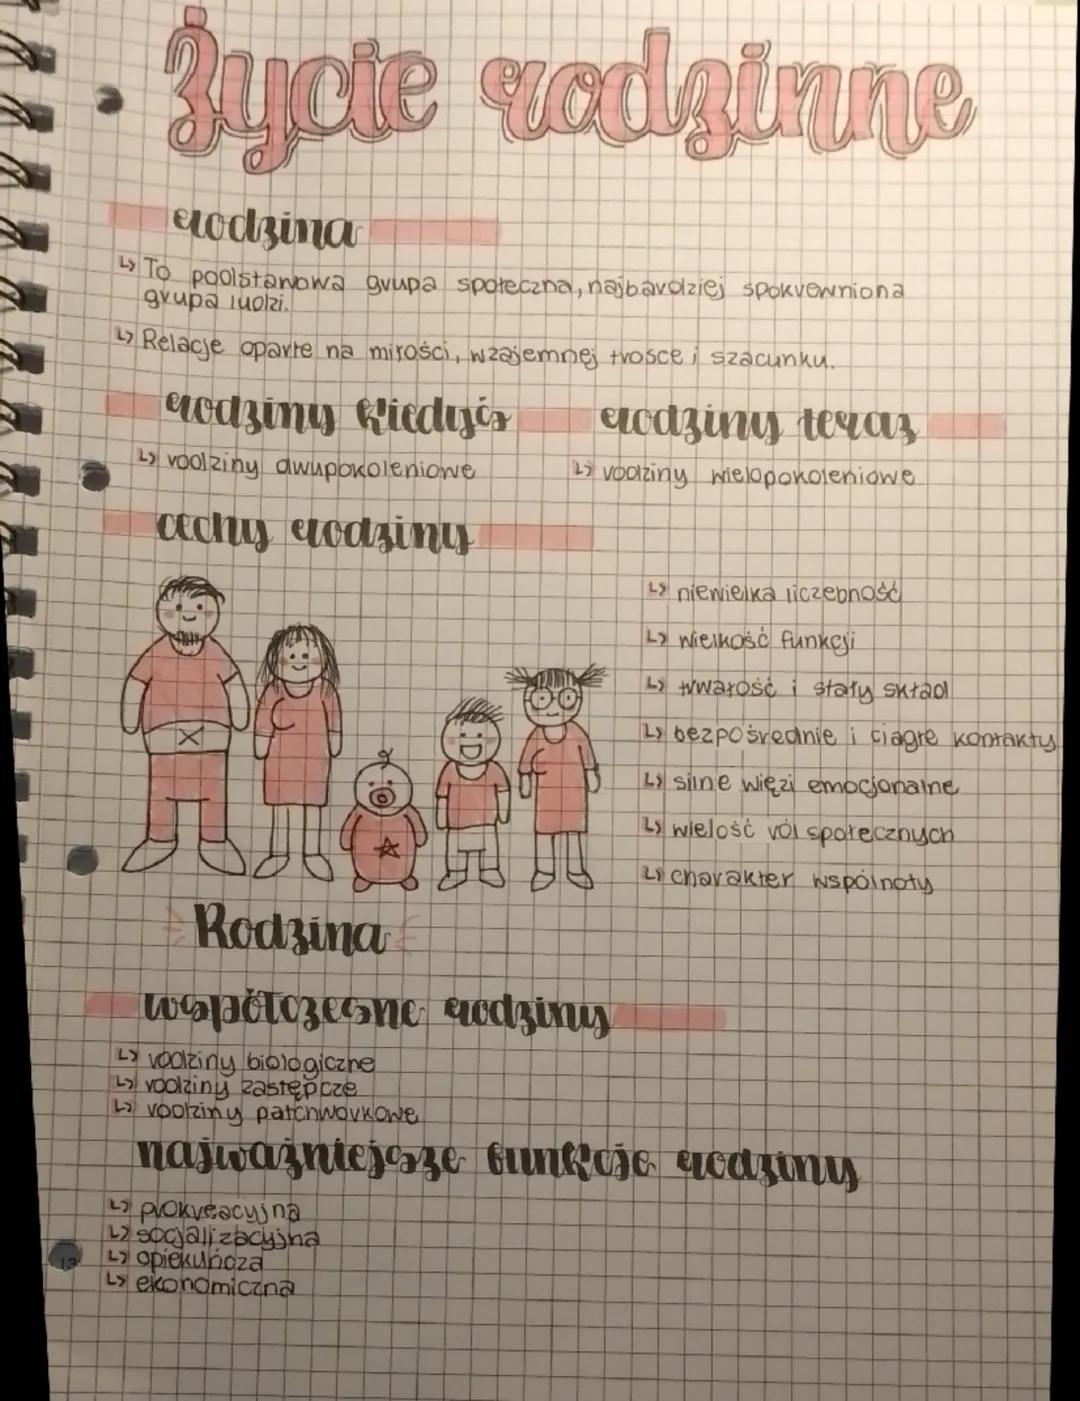 Życie rodzinne
rodzina
↳ To podstawowa grupa społeczna, najbardziej spokrewniona
grupa ludzi.
↳ Relacje oparte na miłości, wzajemnej trosce i szacunku.
rodziny kiedyś
rodziny teraz
↳ rodziny dwupokoleniowe
↳ rodziny wielopokoleniowe
cechy rodziny
↳ niewielka liczebność
↳ wielkość funkcji
↳ trwałość i stały skład
↳ bezpośrednie i ciągłe kontakty
↳ silne więzi emocjonalne
↳ wielość ról społecznych
↳ charakter wspólnoty
Rodzina
współczesne rodziny
↳ rodziny biologiczne
↳ rodziny zastępcze
↳ rodziny patchworkowe
najważniejsze funkcje rodziny
↳ prokreacyjna
↳ socjalizacyjna
↳ opiekuńcza
↳ ekonomiczna